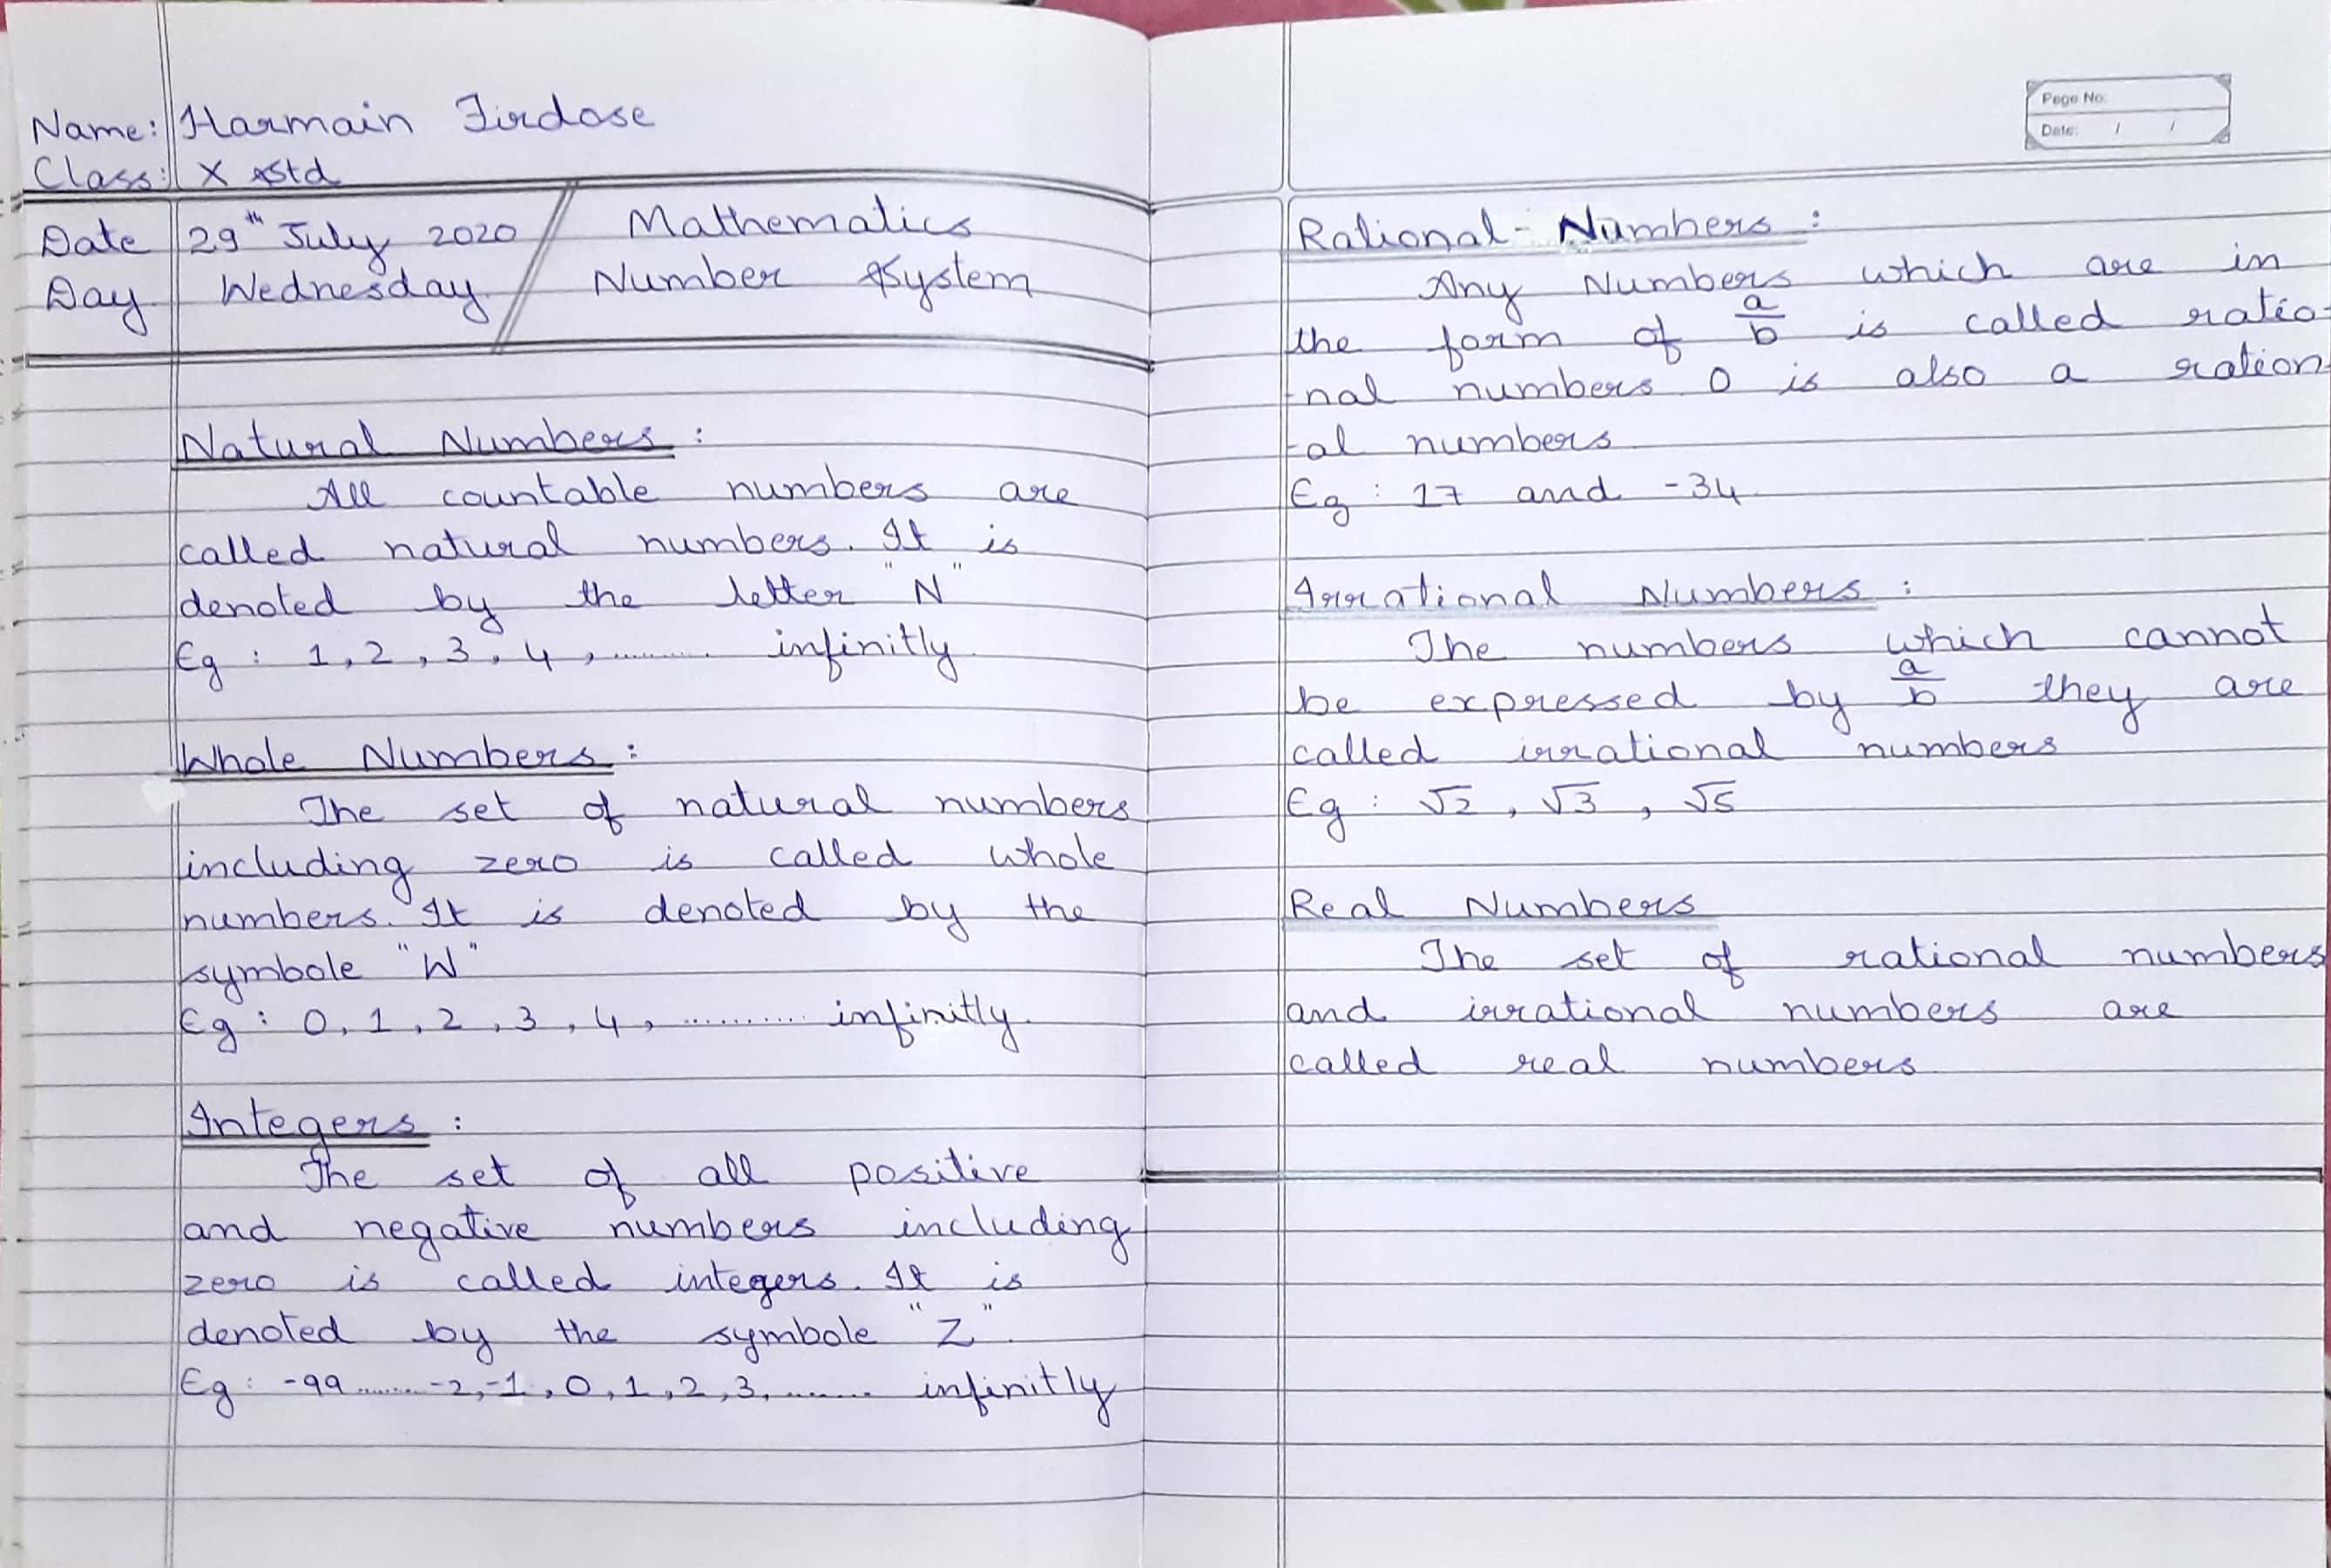 Name: Harmain Firdose
Class: X Std
Date 29th July 2020 Mathematics
Day Wednesday Number System
Natural Numbers :
All countable numbers are
called natural numbers. It is
denoted by the letter "N"
Eg : 1, 2, 3, 4, ......... infinitly
Whole Numbers :
The set of natural numbers
including zero is called whole
numbers. It is denoted by the
symbole "W"
Eg : 0, 1, 2, 3, 4, .......... infinitly.
Integers :
The set of all positive
and negative numbers including
zero is called integers. It is
denoted by the symbole "Z".
Eg : -99 ....... -2, -1, 0, 1, 2, 3, ........ infinitly
Page No:
Date: / /
Rational - Numbers :
Any Numbers which are in
the form of a/b is called ratio-
-nal numbers 0 is also a ration-
-al numbers
Eg : 17 and -34
Irrational Numbers :
The numbers which cannot
be expressed by a/b they are
called irrational numbers
Eg : √2, √3, √5
Real Numbers
The set of rational numbers
and irrational numbers are
called real numbers